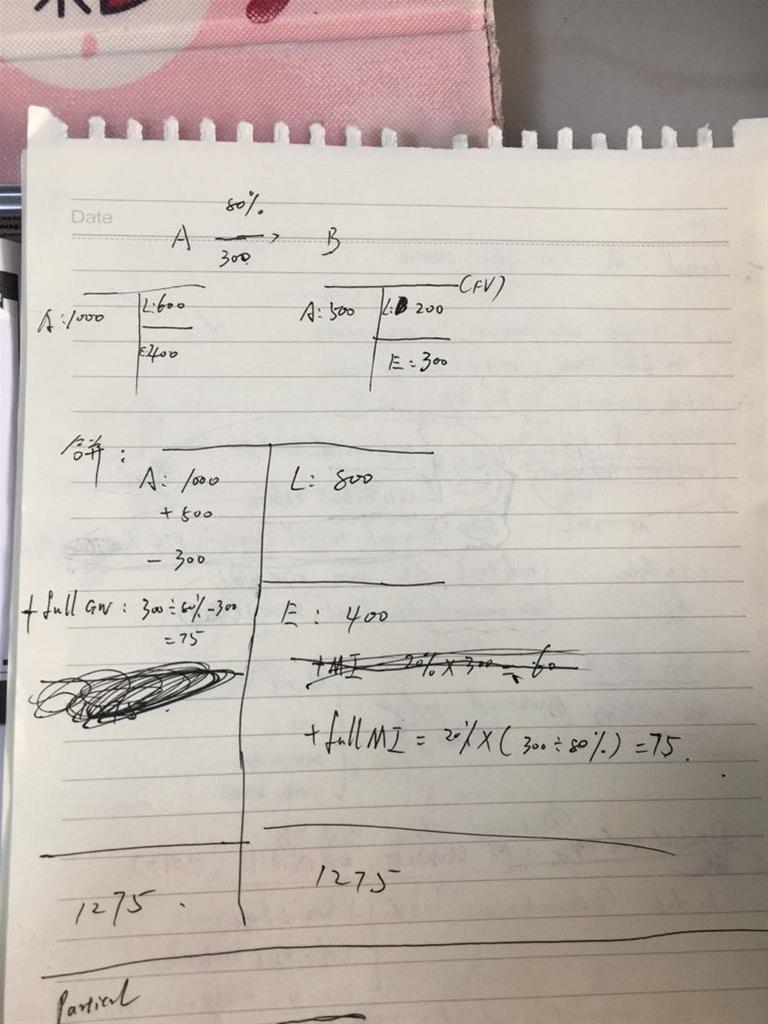 Date
80%
A → B
300
(FV)
A: 1000 L: 600 A: 500 L: 200
E: 400 E = 300
合并:
A: 1000 L: 800
+ 500
- 300
+ full GW: 300 ÷ 80% - 300 E: 400
= 75
+MI 20% X 300 = 60
+ full MI = 20% X ( 300 ÷ 80% ) = 75.
1275. 1275
Partial